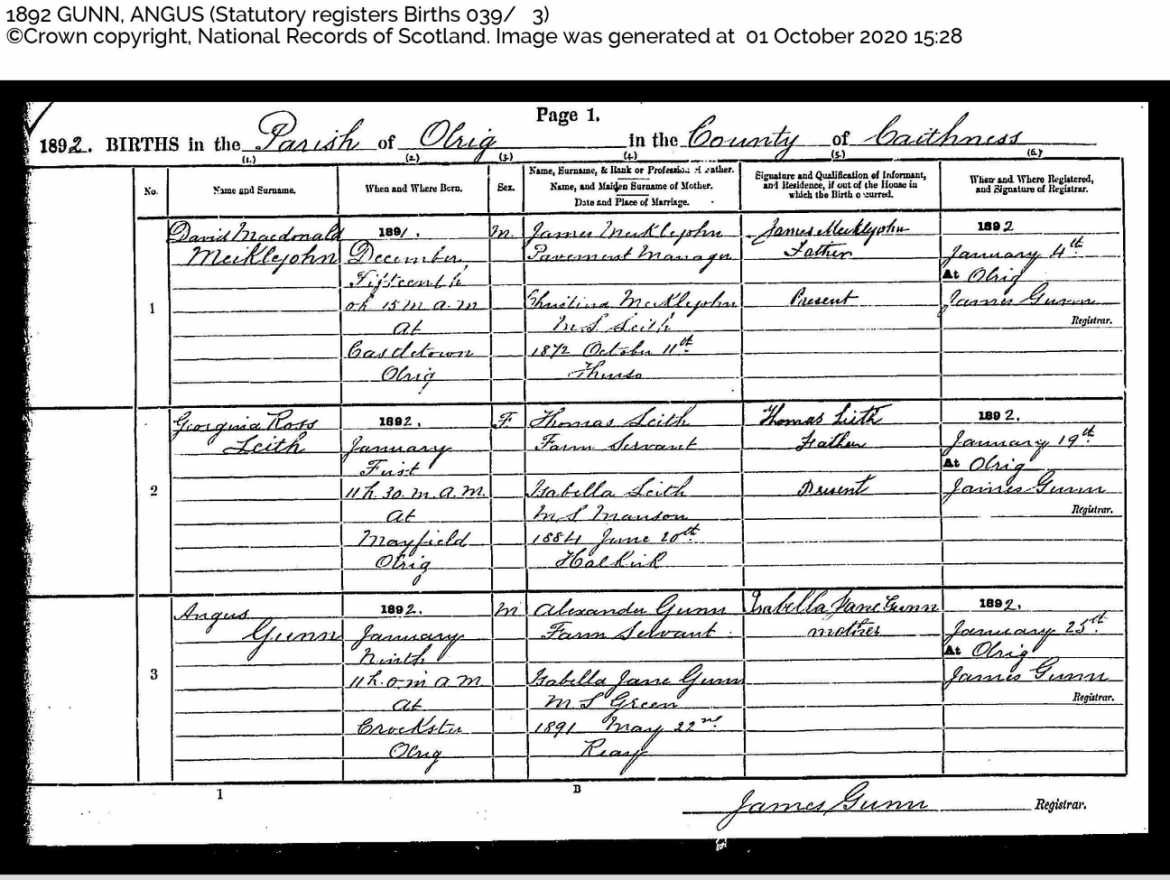 1892 GUNN, ANGUS (Statutory registers Births 039/ 3)
©Crown copyright, National Records of Scotland. Image was generated at 01 October 2020 15:28
Page 1.
1892. BIRTHS in the Parish of Olrig in the County of Caithness
(1.) (2.) (3.) (4.) (5.) (6.)
No.
Name and Surname.
When and Where Born.
Sex.
Name, Surname, & Rank or Profession of Father.
Name, and Maiden Surname of Mother.
Date and Place of Marriage.
Signature and Qualification of Informant,
and Residence, if out of the House in
which the Birth occurred.
When and Where Registered,
and Signature of Registrar.
1
David Macdonald
Meiklejohn
1891.
December
Fifteenth
0h 15m a.m
At
Castletown
Olrig
M.
James Meiklejohn
Pavement Manager
Christina Meiklejohn
M.S Leith
1872 October 11th
Thurso
James Meiklejohn
Father
Present
1892
January 4th
At Olrig
James Gunn
Registrar.
2
Georgina Ross
Leith
1892.
January
First
11h. 30.m. a.m.
At
Mayfield
Olrig
F.
Thomas Leith
Farm Servant
Isabella Leith
M.S Manson
1884 June 20th
Halkirk
Thomas Leith
Father
Present
1892.
January 19th
At Olrig
James Gunn
Registrar.
3
Angus
Gunn
1892.
January
Ninth
11h. 0.m a.m.
At
Olrig
M
Alexander Gunn
Farm Servant
Isabella Jane Gunn
M S Green
1891 May 22nd
Reay
Isabella Jane Gunn
mother
1892.
January 25th
At Olrig
James Gunn
Registrar.
1
B
James Gunn Registrar.